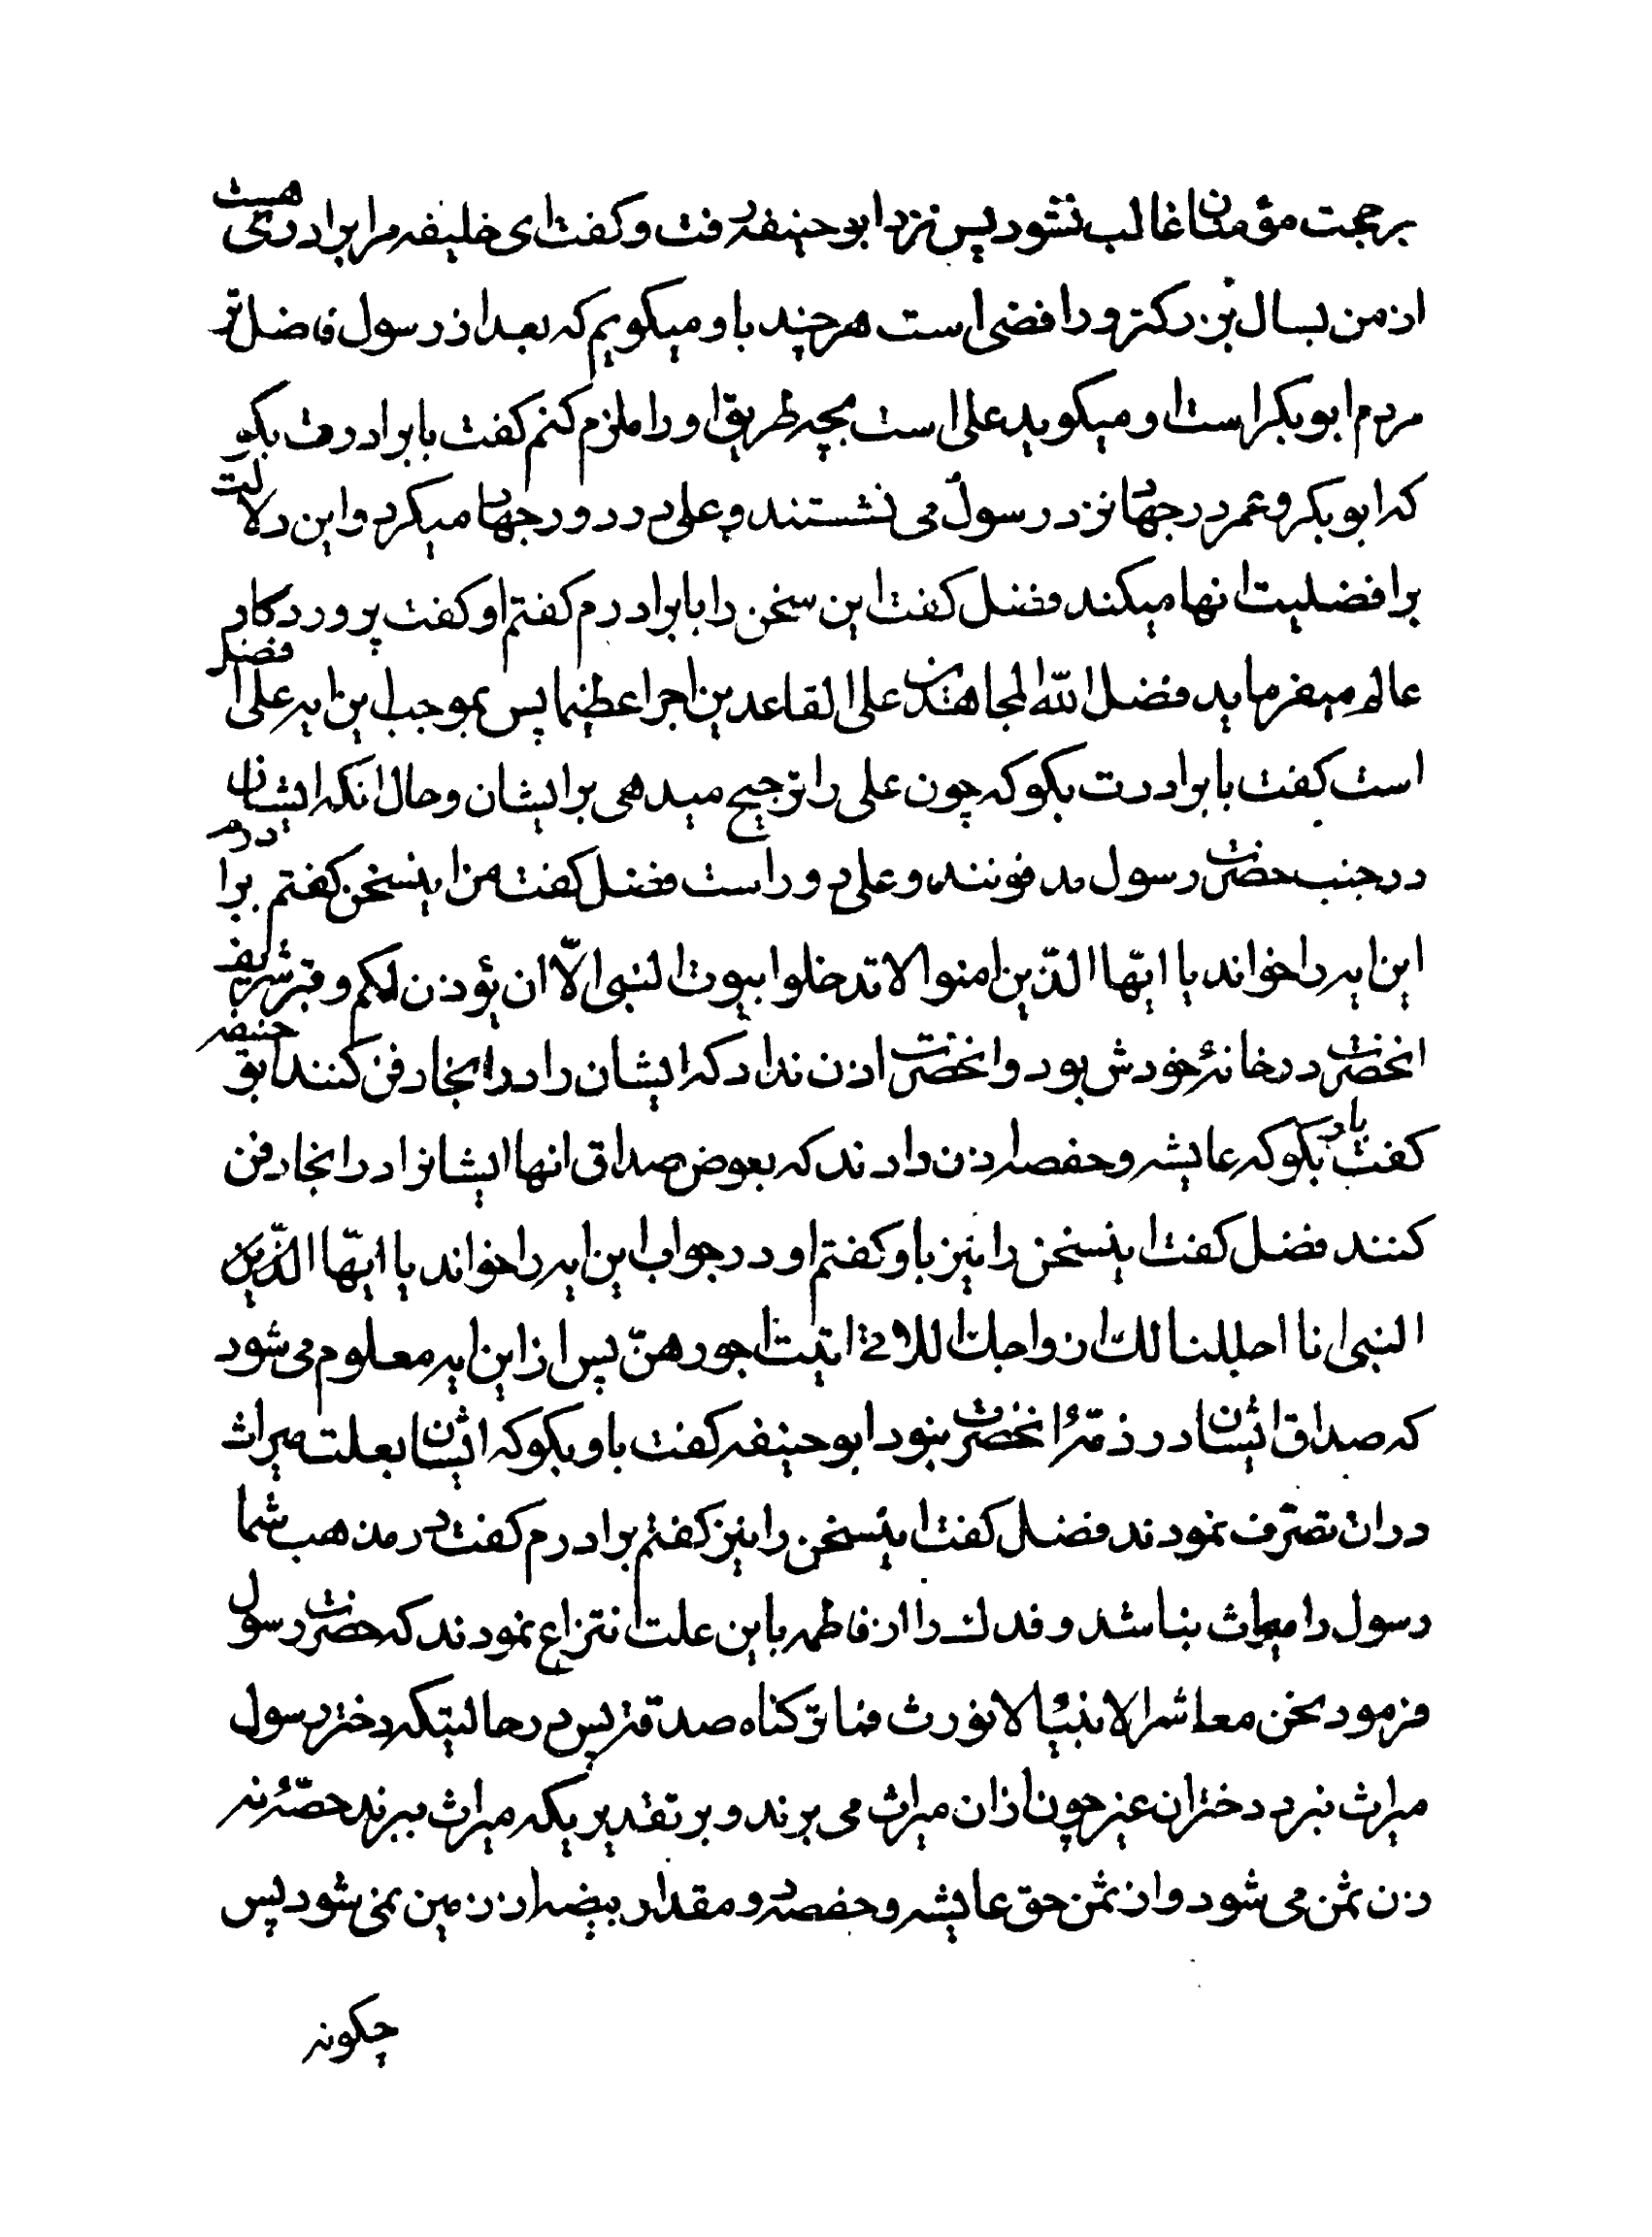 بر حجت مؤمنان غالب نشود پس نزد ابو حنیفه رفت و کفت ای خلیفه مرا برادری هست
از من بسال بزرکتر و رافضی است هر چند باو میکویم که بعد از رسول فاضل تر
مردم ابو بکر است او میکوید علی است بچه طریق او را ملزم کنم کفت با برادرت بکو
که ابو بکر و عمر در جهاد نزد رسول می نشستند و علی در دور جهاد میکرد و این دلالت
بر افضلیت انها میکند فضل کفت این سخن را با برادرم کفتم او کفت پروردکار
عالم میفرماید فضل الله المجاهدین علی القاعدین اجرا عظیما پس بموجب این ایه علی افضل
است کفت با برادرت بکو که چون علی را ترجیح میدهی بر ایشان و حال انکه ایشان
در جنب حضرت رسول مدفونند و علی دور است فضل کفت من اینسخن کفتم برادرم
این ایه را خواند یا ایها الذین امنوا لا تدخلوا بیوت النبی الّا ان یؤذن لکم و قبر شریف
انحضرت در خانهٔ خودش بود و انحضرت اذن نداد که ایشان را در انجا دفن کنند ابو حنیفه
کفت باو بکو که عایشه و حفصه اذن دادند که بعوض صداق انها ایشانرا در انجا دفن
کنند فضل کفت اینسخن را نیز باو کفتم او در جواب این ایه را خواند یا ایها الذین
النبی انا احللنا لک ازواجک اللاتی اتیت اجورهنّ پس از این ایه معلوم می شود
که صداق ایشان در ذمّهٔ انحضرت نبود ابو حنیفه کفت باو بکو که ایشان بعلت میراث
در ان تصرّف نمودند فضل کفت اینسخن را نیز کفتم برادرم کفت در مذهب شما
رسول را میراث نباشد و فدک را از فاطمه باین علت انتزاع نمودند که حضرت رسول
فرمود نحن معاشر الانبیاء لا نورث فما ترکناه صدقة پس در حالیتیکه دختر رسول
میراث نبرد دختران غیر چون از ان میراث می برند و بر تقدیریکه میراث ببرند حصّهٔ نه
زن ثمن می شود و از ثمن حق عایشه و حفصه دو مقدار بیضه از زمین نمی شود پس
چکونه